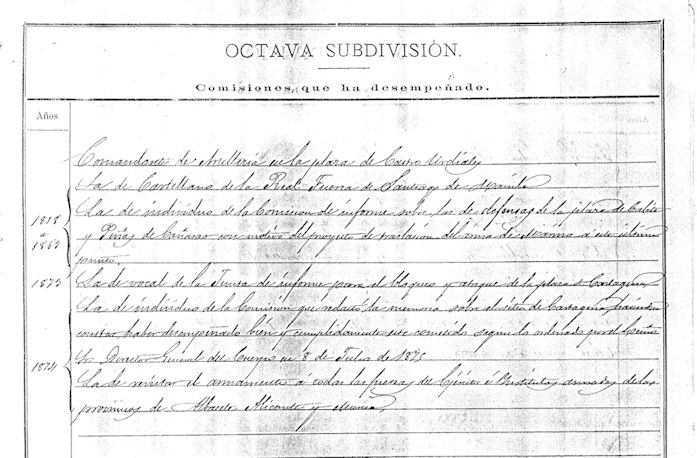 OCTAVA SUBDIVISIÓN.
Comisiones que ha desempeñado.
Años
Comandante de Artillería en la plaza de Castro Urdiales
La de Castellano de la Real Fuerza de Santiago de Manila
La de individuo de la Comision de informe sobre las de defensas de la plaza de
y de Cañacao con motivo del proyecto de traslacion del de Marina a este ultimo
1868
a
1869
punto.
1873 La de vocal de la Junta de informe para el bloqueo y ataque de la plaza de Cartagena
La de individuo de la Comision que redactó la memoria sobre el sitio de Cartagena
constar haber desempeñado bien y cumplidamente este cometido segun lo ordenado por el
Sr. Director General del Cuerpo en 8 de Julio de 1875
1874
La de revistar el armamento á todas las fuerzas del Ejército é Institutos armados de las
provincias de Albacete Alicante y Murcia